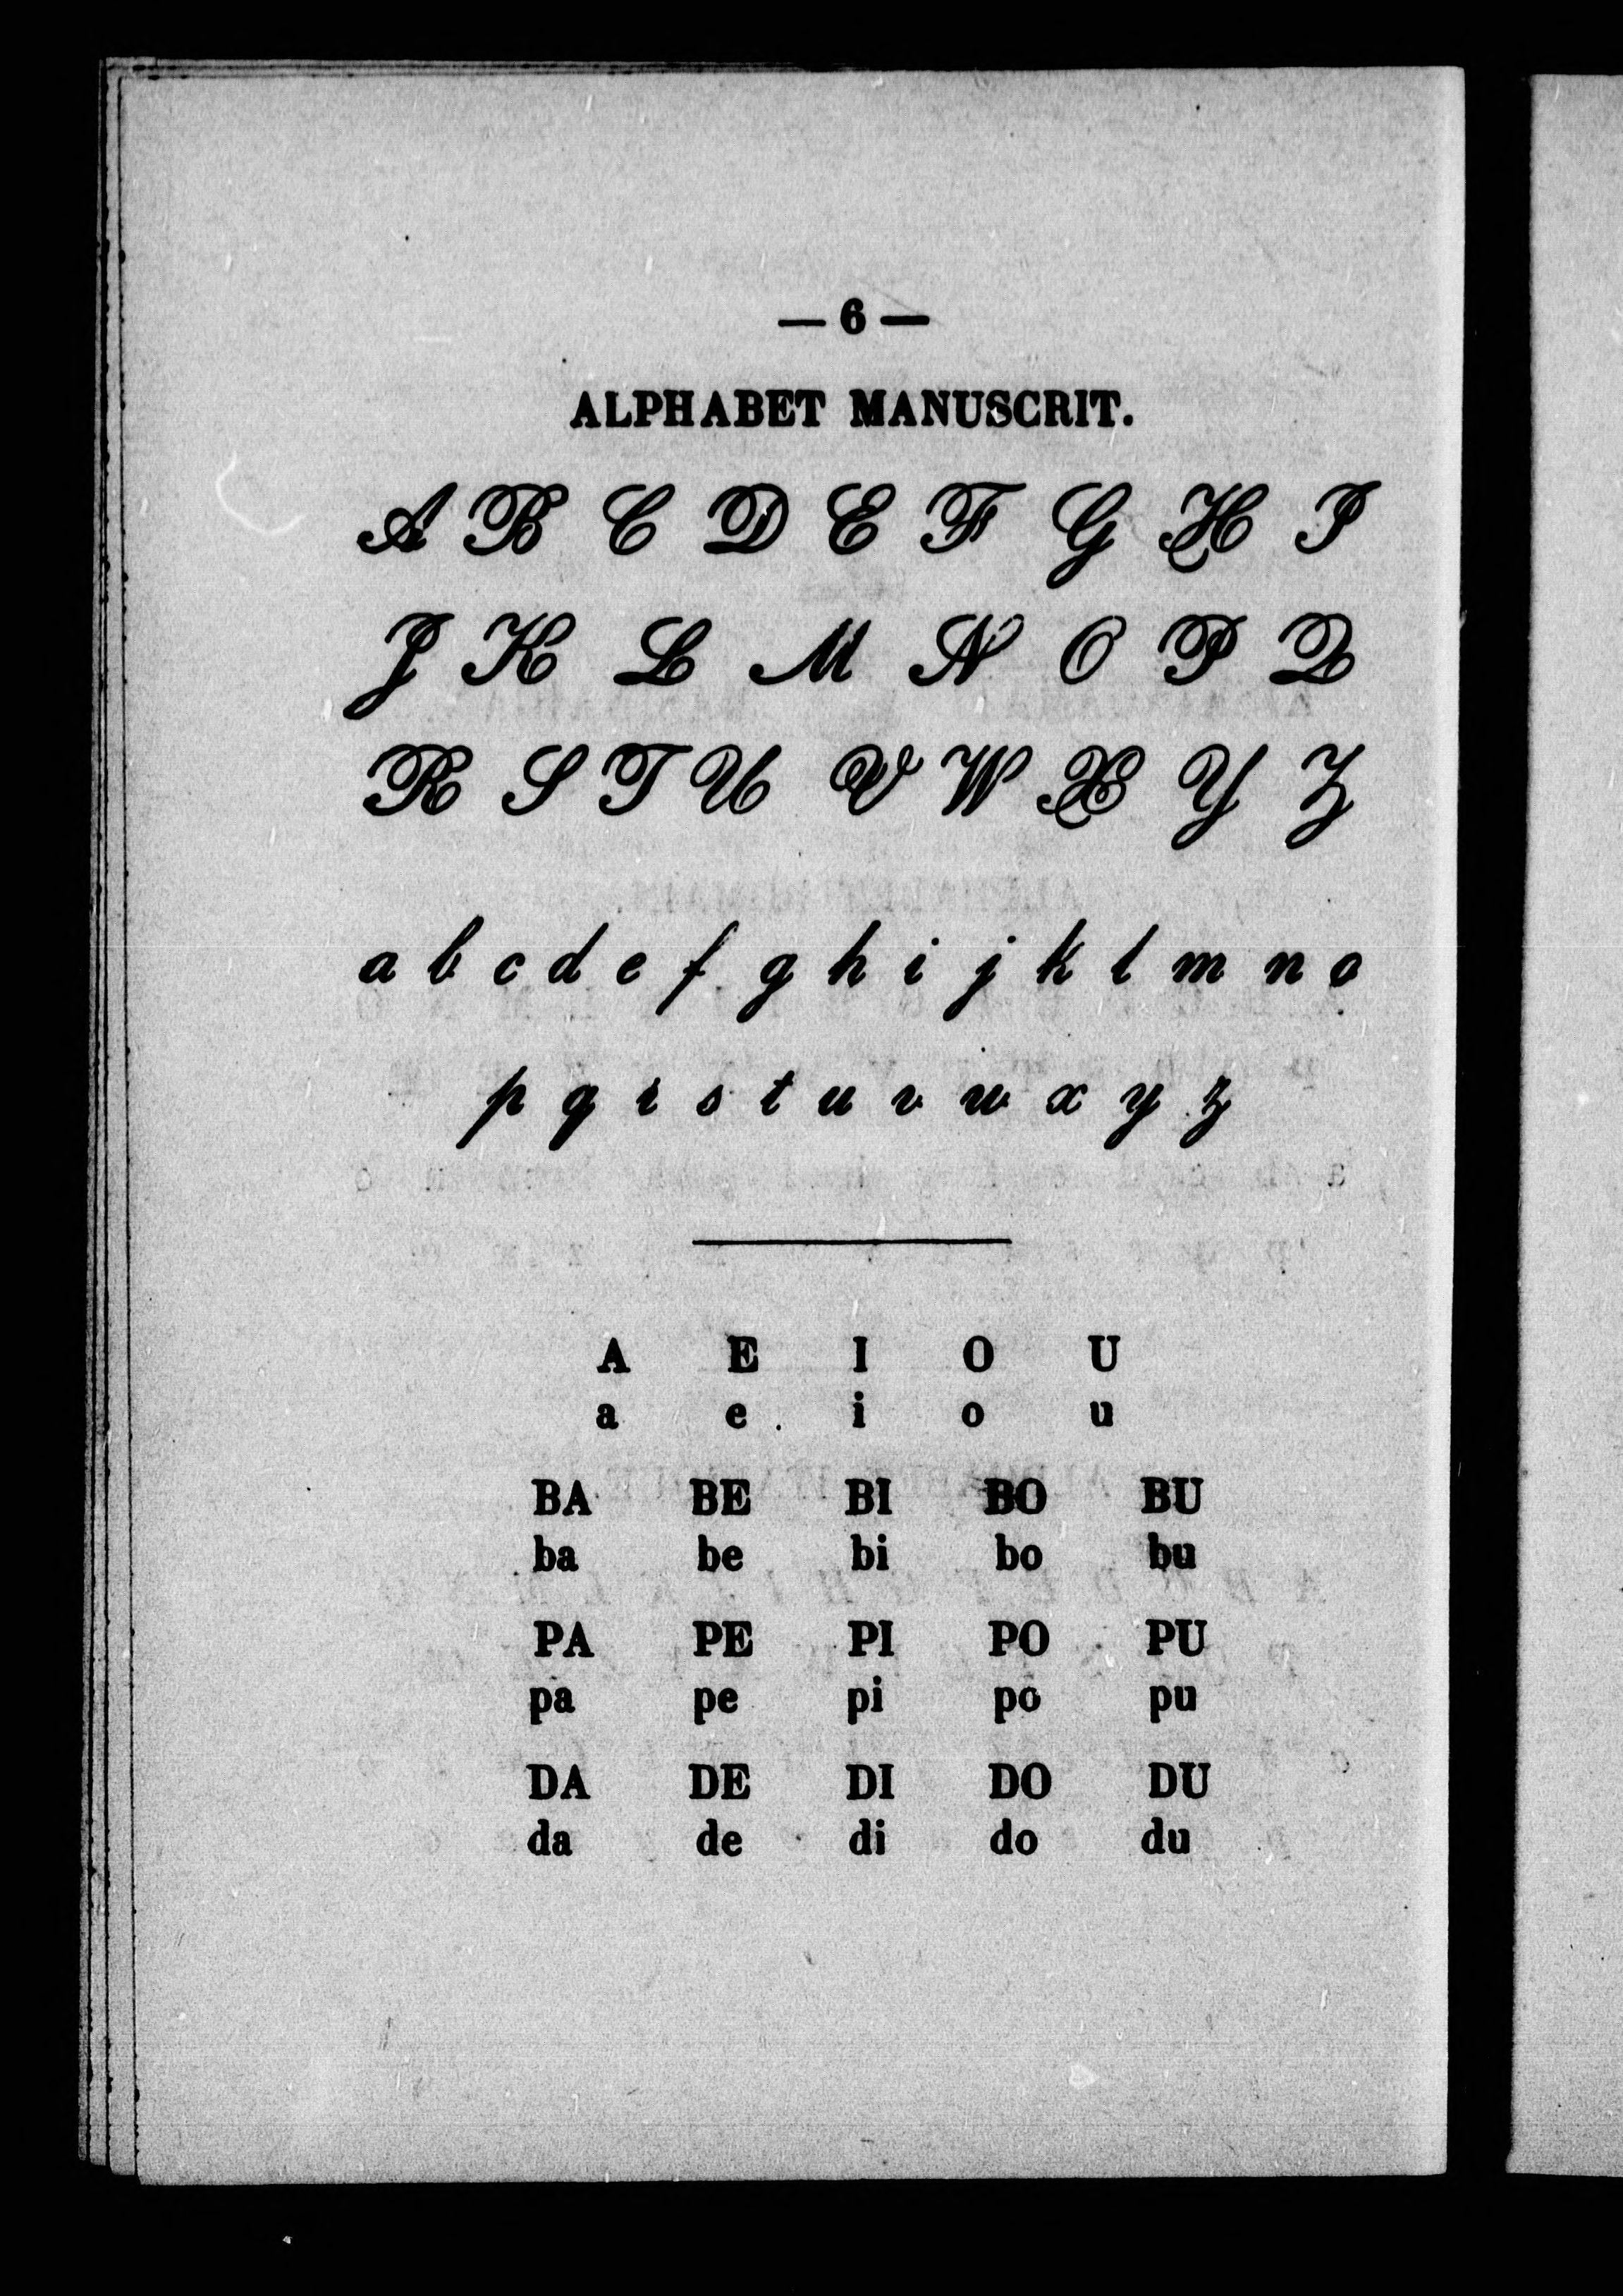 — 6 —
ALPHABET MANUSCRIT.
A B C D E F G H I
J K L M N O P Q
R S T U V W X Y Z
a b c d e f g h i j k l m n o
p q r s t u v w x y z
A E I O U
a e i o u
BA BE BI BO BU
ba be bi bo bu
PA PE PI PO PU
pa pe pi po pu
DA DE DI DO DU
da de di do du